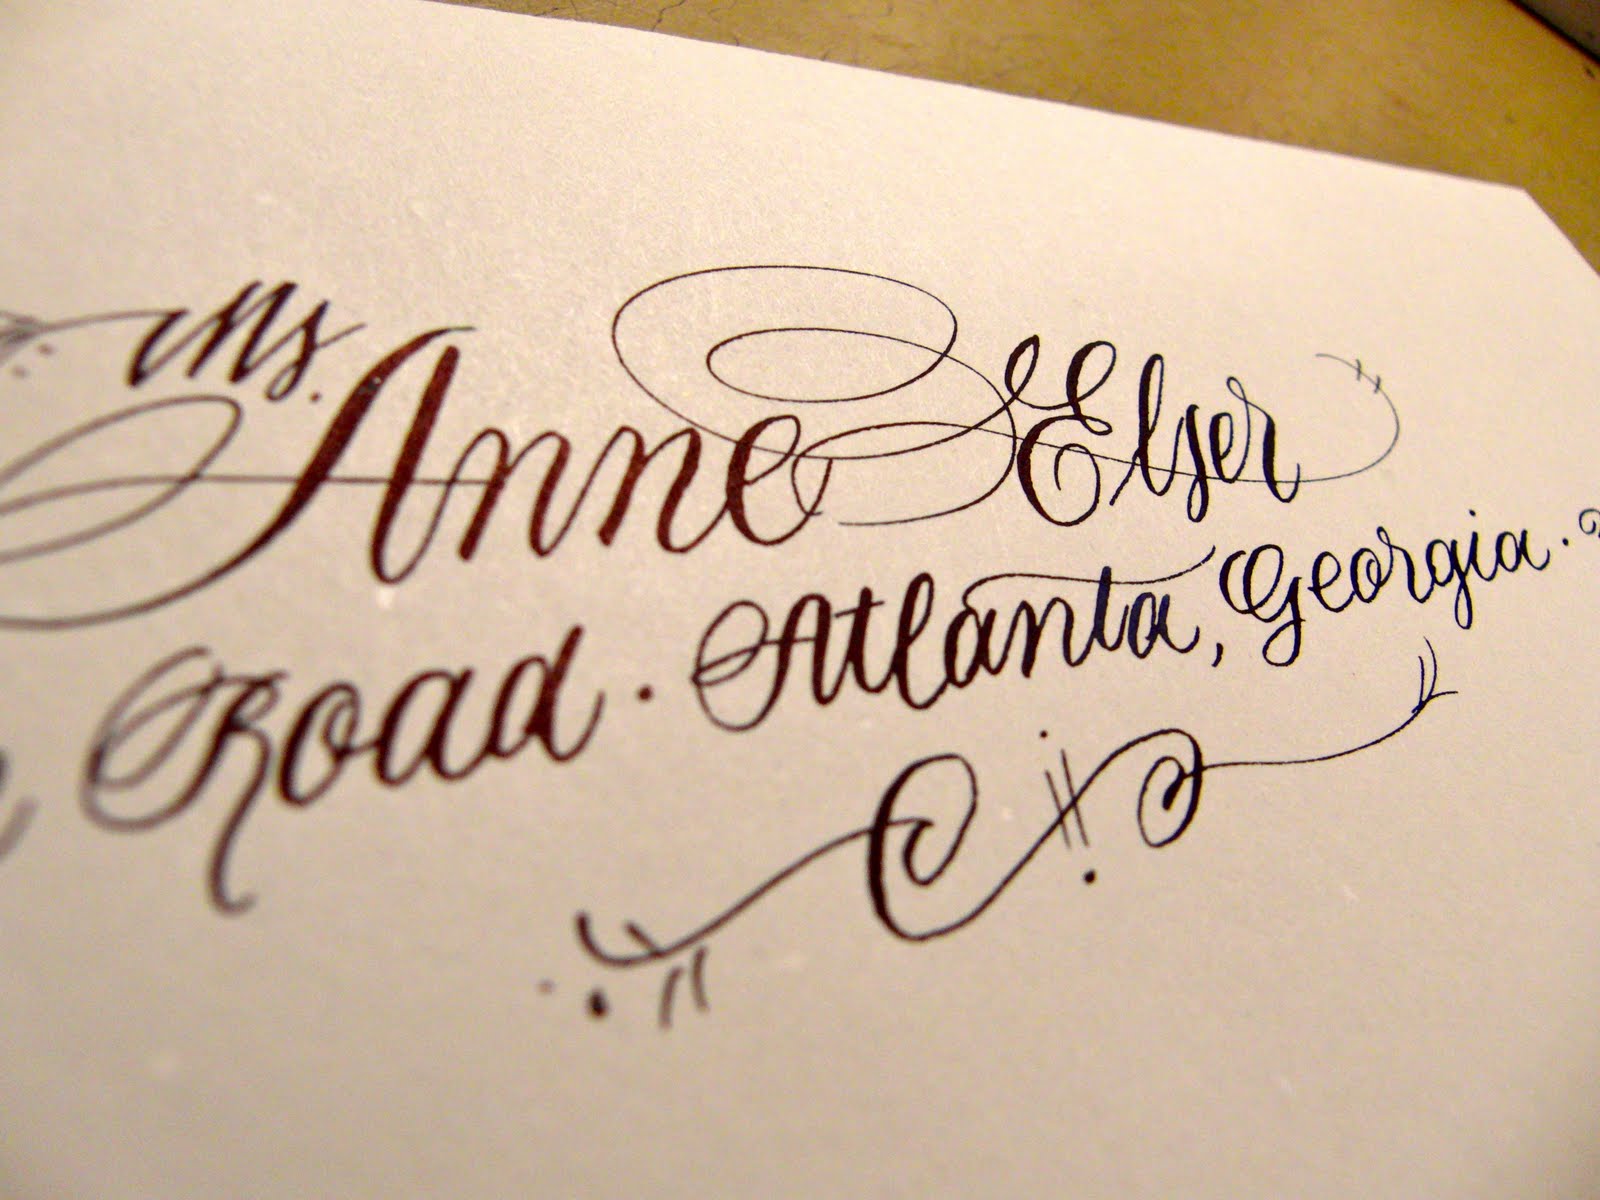 Ms. Anne Elser
Road · Atlanta, Georgia ·